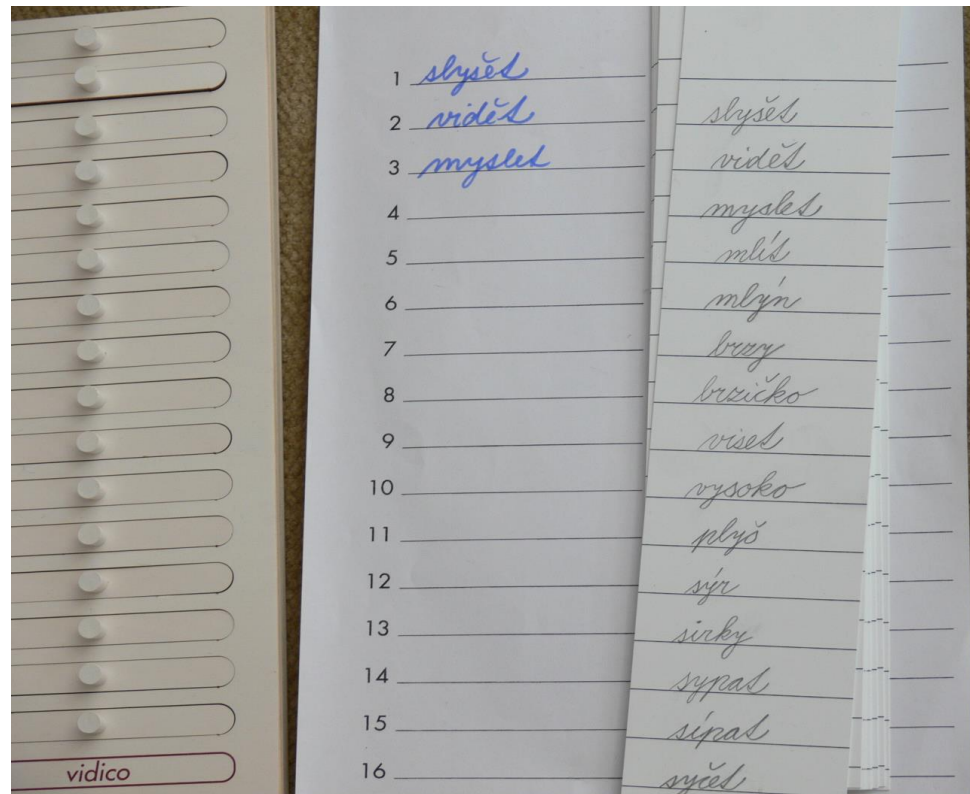 1 slyšet
2 vidět
3 myslet
4
5
6
7
8
9
10
11
12
13
14
15
16
slyšet
vidět
myslet
mlít
mlýn
brzy
brzičko
viset
vysoko
plyš
sýr
sirky
sypat
sípat
syčet
vidico